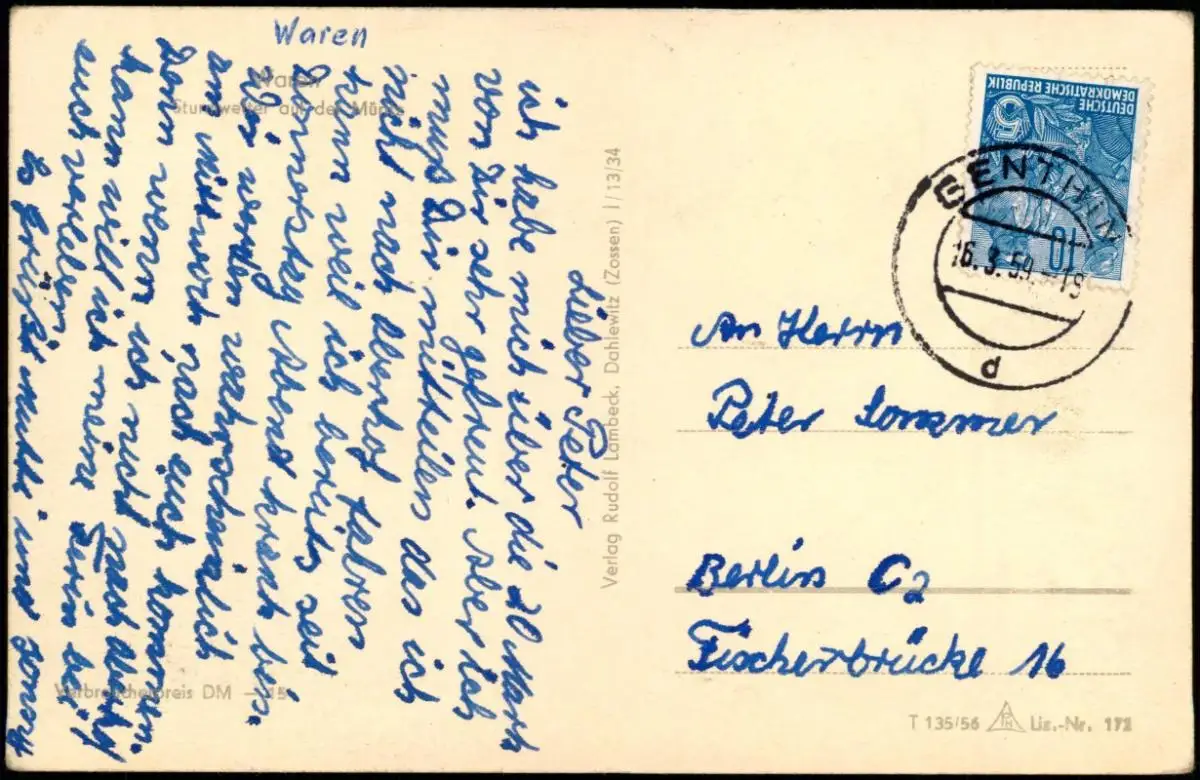 Waren
Waren
Sturmwetter auf der Müritz
Lieber Peter
ich habe mich über die 20 Mark
von Dir sehr gefreut. Aber ich
muß Dir mitteilen das ich
nicht nach Oberhof fahren
kann weil ich bereits seit
Donnerstag Abend krank bin.
Wir werden wahrscheinlich
am nach euch kommen.
Denn wenn ich nicht nach Oberhof
kann will ich meine bei
euch
Es grüßt und
Verbraucherpreis DM -,15
Verlag Rudolf Lambeck, Dahlewitz (Zossen) I/13/34
DEUTSCHE
DEMOKRATISCHE REPUBLIK
5
10
GENTHIN
16.3.59.-19
d
An Herrn
Peter Sommer
Berlin C2
Fischerbrücke 16
T 135/56 Liz.-Nr. 172